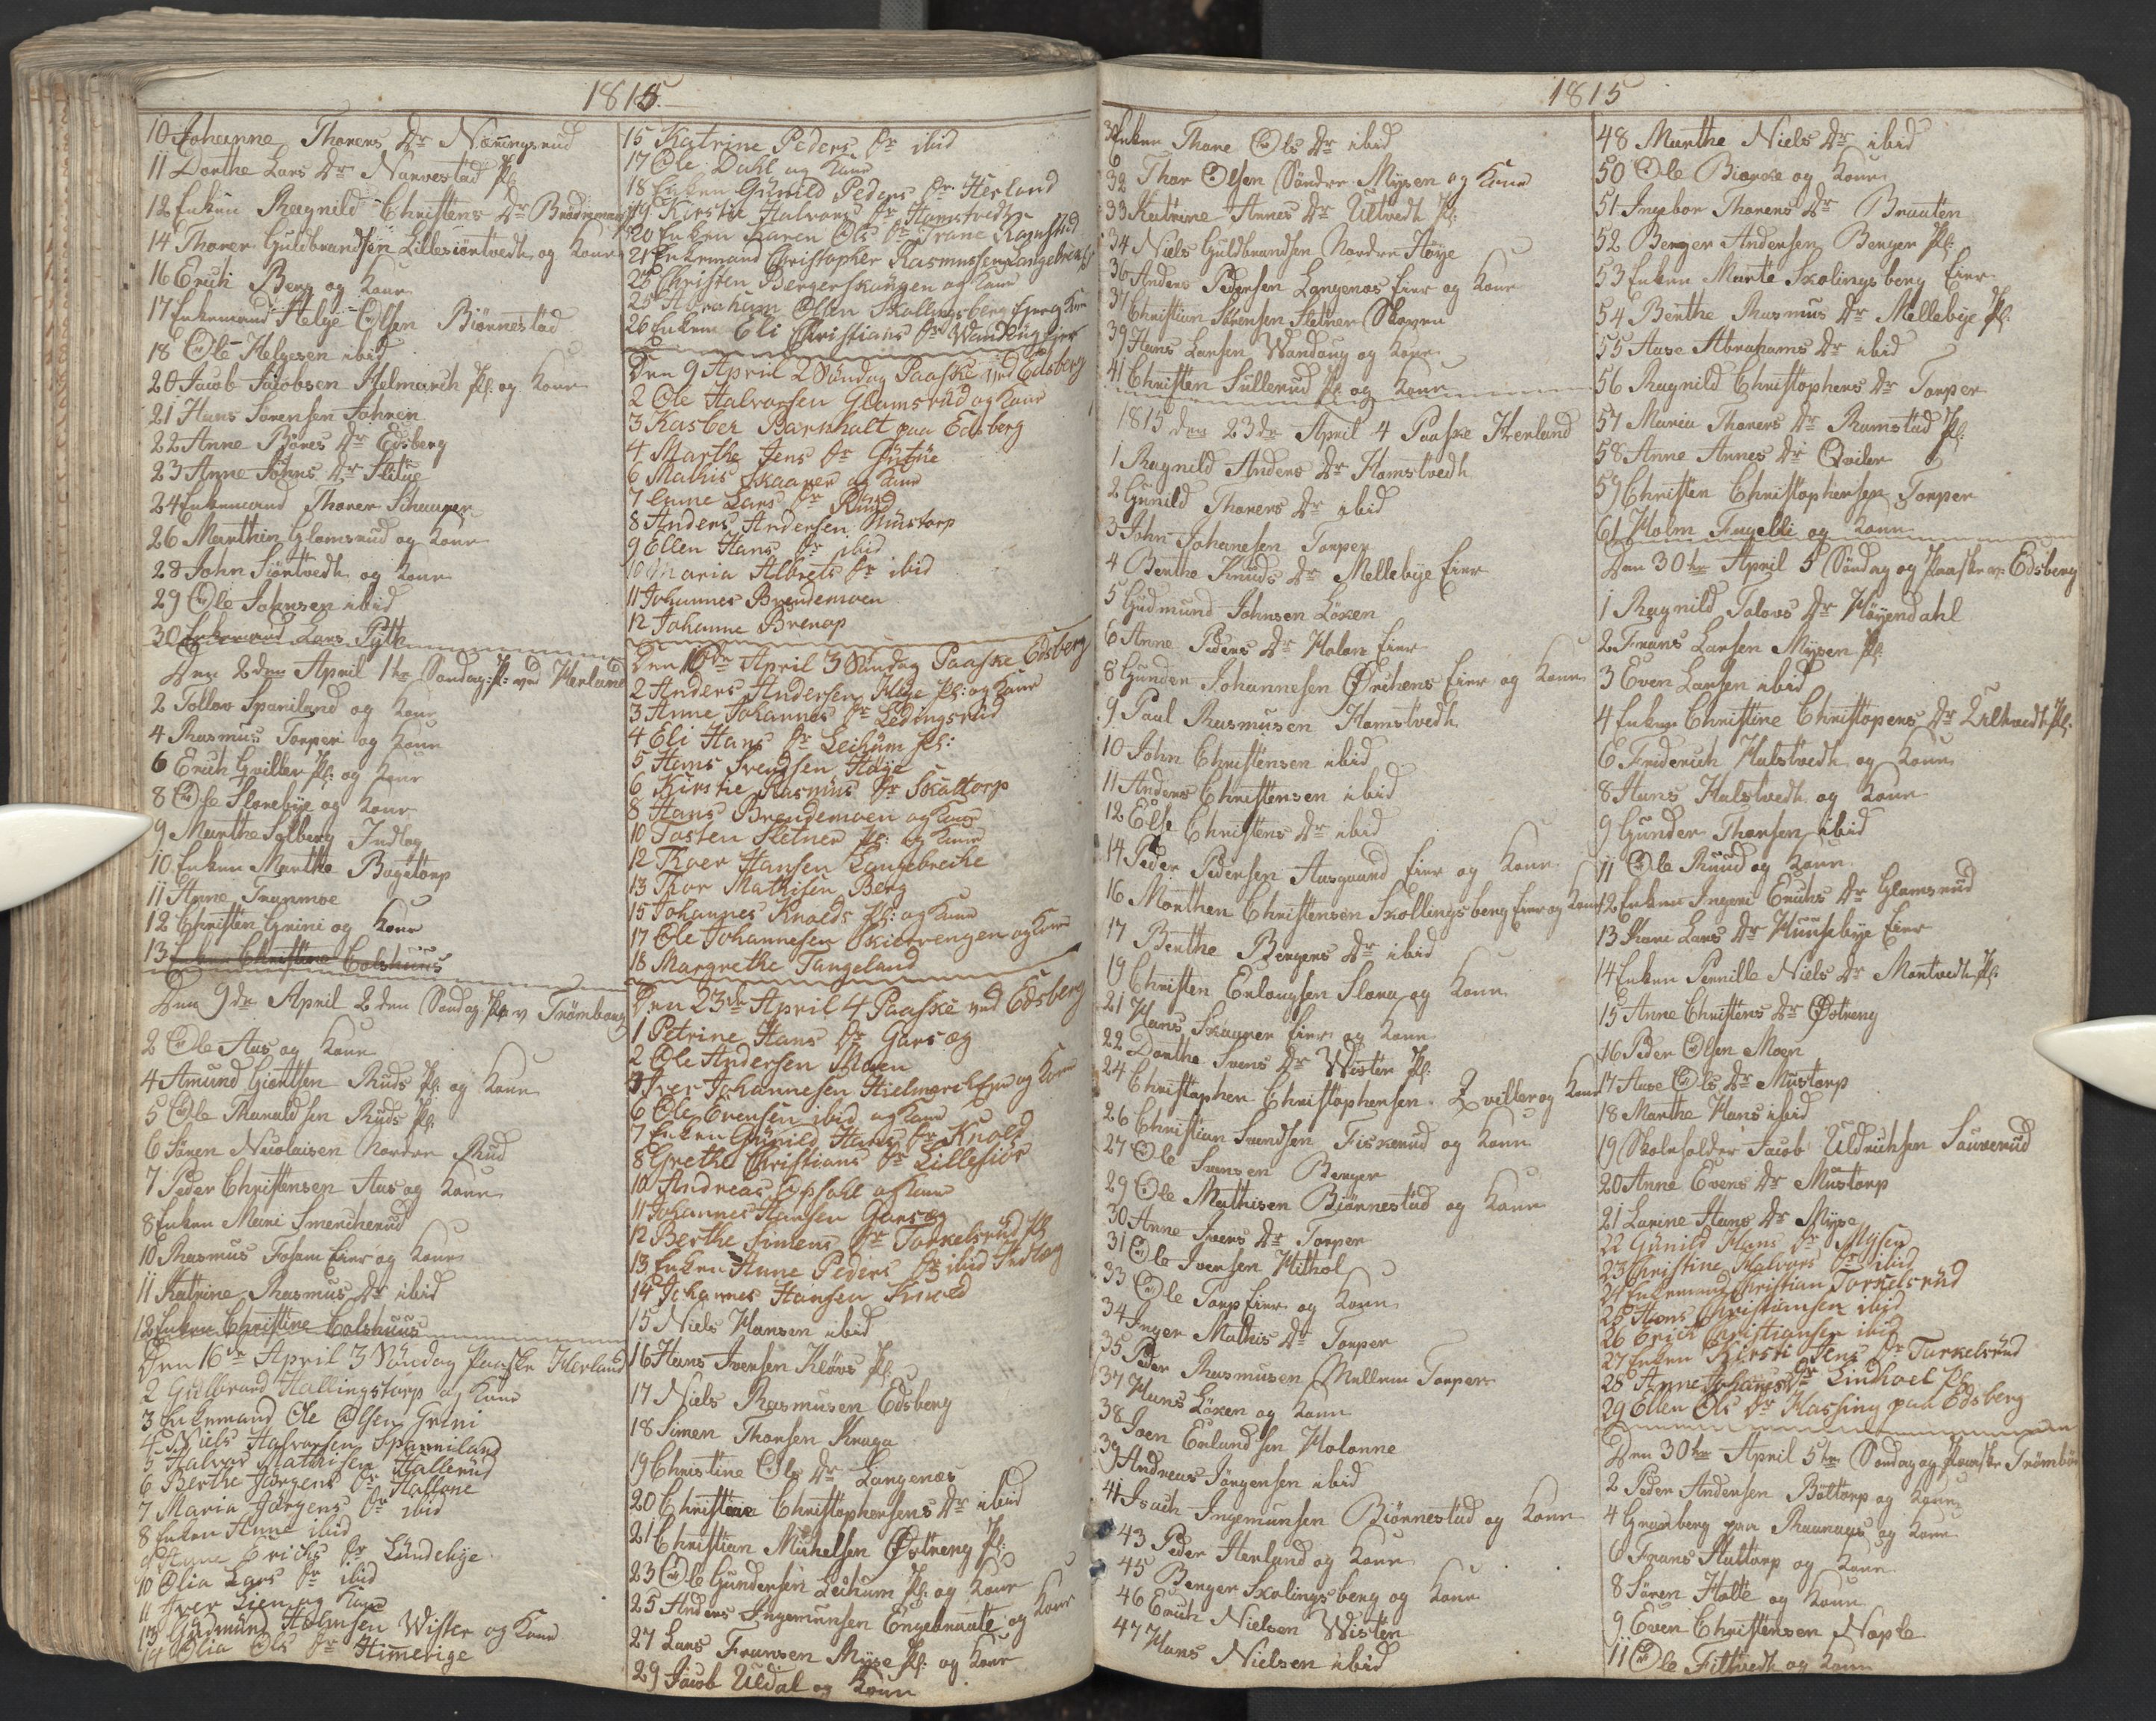 1815.
10 Johanne Thorers Dr Næringsrud
11 Dorthe Lars Dr Narvestad Pl:
12 Enken Ragnild Christens Dr
14 Thorer Guldbrandsen Lillesiøntvedt og Kone
16 Erich Berg og Kone
17 Enkemand Helge Olsen Biørnestad
18 Ole Helgesen ibid
20 Jacob Jacobsen Helmarch Pl: og Kone
21 Hans Sørensen
22 Anne Børes Dr Edsberg
23 Anne Johns Dr
24 Enkemand Thorer
26 Marthin Glomsrud og Kone
28 John Siøntvedt og Kone
29 Ole Johnsen ibid
30 Enkemand Lars
Den 2den April 1te Søndag P: ved Herland
2 Tollov Spaniland og Kone
4 Rasmus Torper og Kone
6 Erich Pl: og Kone
8 Ole Slorebye og Kone
9 Marthe Solberg Indlog
10 Enken Marthe Bøgetorp
11 Anne
12 Christen Grini og Kone
13 Enken Christine Colshuus
Den 9de April 2den Søndag P v Trømborg
2 Ole Aas og Kone
4 Amund Ruds Pl: og Kone
5 Ole Ruds Pl:
6 Søren Nicolaisen Nordre Rud
7 Peder Christensen Aas og Kone
8 Enken Mari
10 Rasmus Fosom Eier og Kone
11 Katrine Rasmus Dr ibid
12 Enken Christine Colshuus
Den 16de April 3 Søndag Paaske Herland
2 Gulbrand Hallingstorp og Kone
3 Enkemand Ole Olsen Grini
4 Niels Halvorsen Spanniland
5 Halvor Mathisen Hallerud
6 Berthe Jørgens Dr
7 Maria Jørgens Dr ibid
8 Enken Anne ibid
9 Anne Erichs Dr Lundebye
10 Olia Lars Dr ibid
11 Iver Lien og Kone
13 Gudmund Holmsen Wister og Kone
14 Olia Ols Dr Himerige
15 Katrine Peders Dr ibid
17 Ole Dahl og Kone
18 Enken Gunild Peders Dr Herland
19 Kirstie Halvors Dr Hamstvedt
20 Enken Karen Ols Dr Ramstad
21 Enkemand Christopher Rasmussen
23 Christen Bergerskangen og Kone
25 Abraham Olsen Skallingsberg Eier og Kone
26 Enken Eli Christians Dr
Den 9 April 2 Søndag Paaske ved Edsberg
2 Ole Halvorsen Glomsrud og Kone
3 Kasber Barnholt paa Edsberg
4 Marthe Jens Dr
6 Mathis Skaarer og Kone
7 Anne Lars Dr Ruud
8 Anders Andersen Mustorp
9 Ellen Hans Dr ibid
10 Maria Albrets Dr ibid
11 Johannes Brendemoen
12 Johanne
Den 16de April 3 Søndag Paaske Edsberg
2 Anders Andersen Pl: og Kone
3 Anne Johannes Dr Ledingsrud
4 Eli Hans Dr Leikum Pl:
5 Hans Svendsen Høye
6 Kirstie Rasmus Dr Skaltorp
8 Hans Brendemoen og Kone
10 Tosten Sletner Pl: og Kone
12 Thoer Hansen Langebreche
13 Thor Mathisen Berg
15 Johannes Knolds Pl: og Kone
17 Ole Johannesen og Kone
18 Margrethe Tangeland
Den 23de April 4 Paaske ved Edsberg
1 Petrine Hans Dr Garseg
2 Ole Andersen Moen
Iver Johannesen Eier og Kone
6 Ole Evensen ibid og Kone
7 Enken Gunild Hans Dr Knold
8 Grethe Christians Dr
10 Andreas Opsahl og Kone
11 Johannes Hansen Garseg
12 Berthe Simens Dr Torkelsrud Pl
13 Enken Anne Peders Dr ibid Indlog
14 Johannes Hansen Knold
15 Niels Hansen ibid
16 Hans Iversen Kløvs Pl:
17 Niels Rasmusen Edsberg
18 Simen Thorsen Kraga
19 Christine Ols Dr Langenæs
20 Christine Christophersens Dr ibid
21 Christian Michelsen Østreng Pl:
23 Ole Gundersen Leikum Pl: og Kone
25 Anders Ingemunsen Engebraate og Kone
27 Lars Fransen Myse Pl: og Kone
29 Jacob Uldal og Kone
1815
Enken Thore Ols Dr ibid
32 Thor Olsen Søndre Mysen og Kone
33 Katrine Annes Dr Ultvedt Pl:
34 Niels Guldbrandsen Nordre Høye
36 Anders Pedersen Langenæs Eier og Kone
37 Christian Sørensen Sletner Skoven
39 Hans Larsen Wandaug og Kone
41 Christen Sullerud Pl og Kone
1815 den 23de April 4 Paaske Herland
1 Ragnild Anders Dr Hamstvedt
2 Gunild Thorers Dr ibid
3 John Johanesen Torper
4 Berthe Knuds Dr Mellebye Eier
5 Gudmund Johnsen Løken
6 Anne Peders Dr Holen Eier
8 Gunder Johannesen Eier og Kone
9 Paul Rasmusen Hamstvedt
10 John Christensen ibid
11 Anders Christensen ibid
12 Else Christens Dr ibid
14 Peder Pedersen Aasgaard Eier og Kone
16 Morthen Christensen Skollingsberg Eier og Kone
17 Berthe Bergers Dr ibid
19 Christen Erlaugsen Slora og Kone
21 Hans Skaarer Eier og Kone
22 Dorthe Svens Dr Wister Pl:
24 Christopher Christophersen og Kone
26 Christian Svendsen Fiskerud og Kone
27 Ole Svensen Berger
29 Ole Mathisen Biørnestad og Kone
30 Anne Ivers Dr Torper
31 Ole Iversen Hithol
33 Ole Torp Eier og Kone
34 Inger Mathis Dr Torper
35 Peder Rasmusen Mellem Torper
37 Hans Løken og Kone
38 Joen Erlandsen Kolonne
39 Andreas Jørgensen ibid
41 Isach Ingemunsen Biørnestad og Kone
43 Peder Herland og Kone
45 Berger Skolingsberg og Kone
46 Erich Nielsen Wister
47 Hans Nielsen ibid
48 Marthe Niels Dr ibid
50 Ole Biørke og Kone
51 Ingebor Thorers Dr Braaten
52 Berger Andersen Berger Pl:
53 Enken Marte Skolingsberg Eier
54 Berthe Rasmus Dr Mellebye Pl:
55 Aase Abrahams Dr ibid
56 Ragnild Christophers Dr Torper
57 Maria Thorers Dr Ramstad Pl:
58 Anne Annes Dr Qviler
59 Christen Christophersen Torper
61 Holm Fugelli og Kone
Den 30te April 5 Søndag og Paaske v: Edsberg
1 Ragnild Tolovs Dr Høyendahl
2 Frans Larsen Mysen Pl:
3 Even Larsen ibid
4 Enken Christine Christopers Dr Ultvedt Pl:
6 Friderich Hulstvedt og Kone
8 Hans Hulstvedt og Kone
9 Gunder Thorsen ibid
11 Ole Ruud og Kone
12 Enken Ingeri Erichs Dr Glomsrud
13 Kari Lars Dr Huusebye Eier
14 Enken Pernille Niels Dr Mørtvedt Pl:
15 Anne Christens Dr Østreng
16 Peder Olsen Moen
17 Aase Ols Dr Mustorp
18 Marthe Hans ibid
19 Skoleholder Jacob Uldrichsen Sauverud
20 Anne Evens Dr Mustorp
21 Larine Hans Dr Myse
22 Gunild Hans Dr Mysen
23 Christine Halvors Dr ibid
24 Enkemand Christian Torkelsrud
25 Hans Christiansen ibid
26 Erich Christiansen ibid
27 Enken Kirsti Jens Dr Torkelsrud
28 Anne Johanes Dr Lindhoel Pl:
29 Ellen Ols Dr Kassing paa Edsberg
Den 30te April 5te Søndag og Paaske
2 Peder Andersen Bøttorp og Kone
4 Granberg paa Raanaas og Kone
6 Frans Hattorp og Kone
8 Søren Holte og Kone
9 Even Christensen
11 Ole Filtvedt og Kone